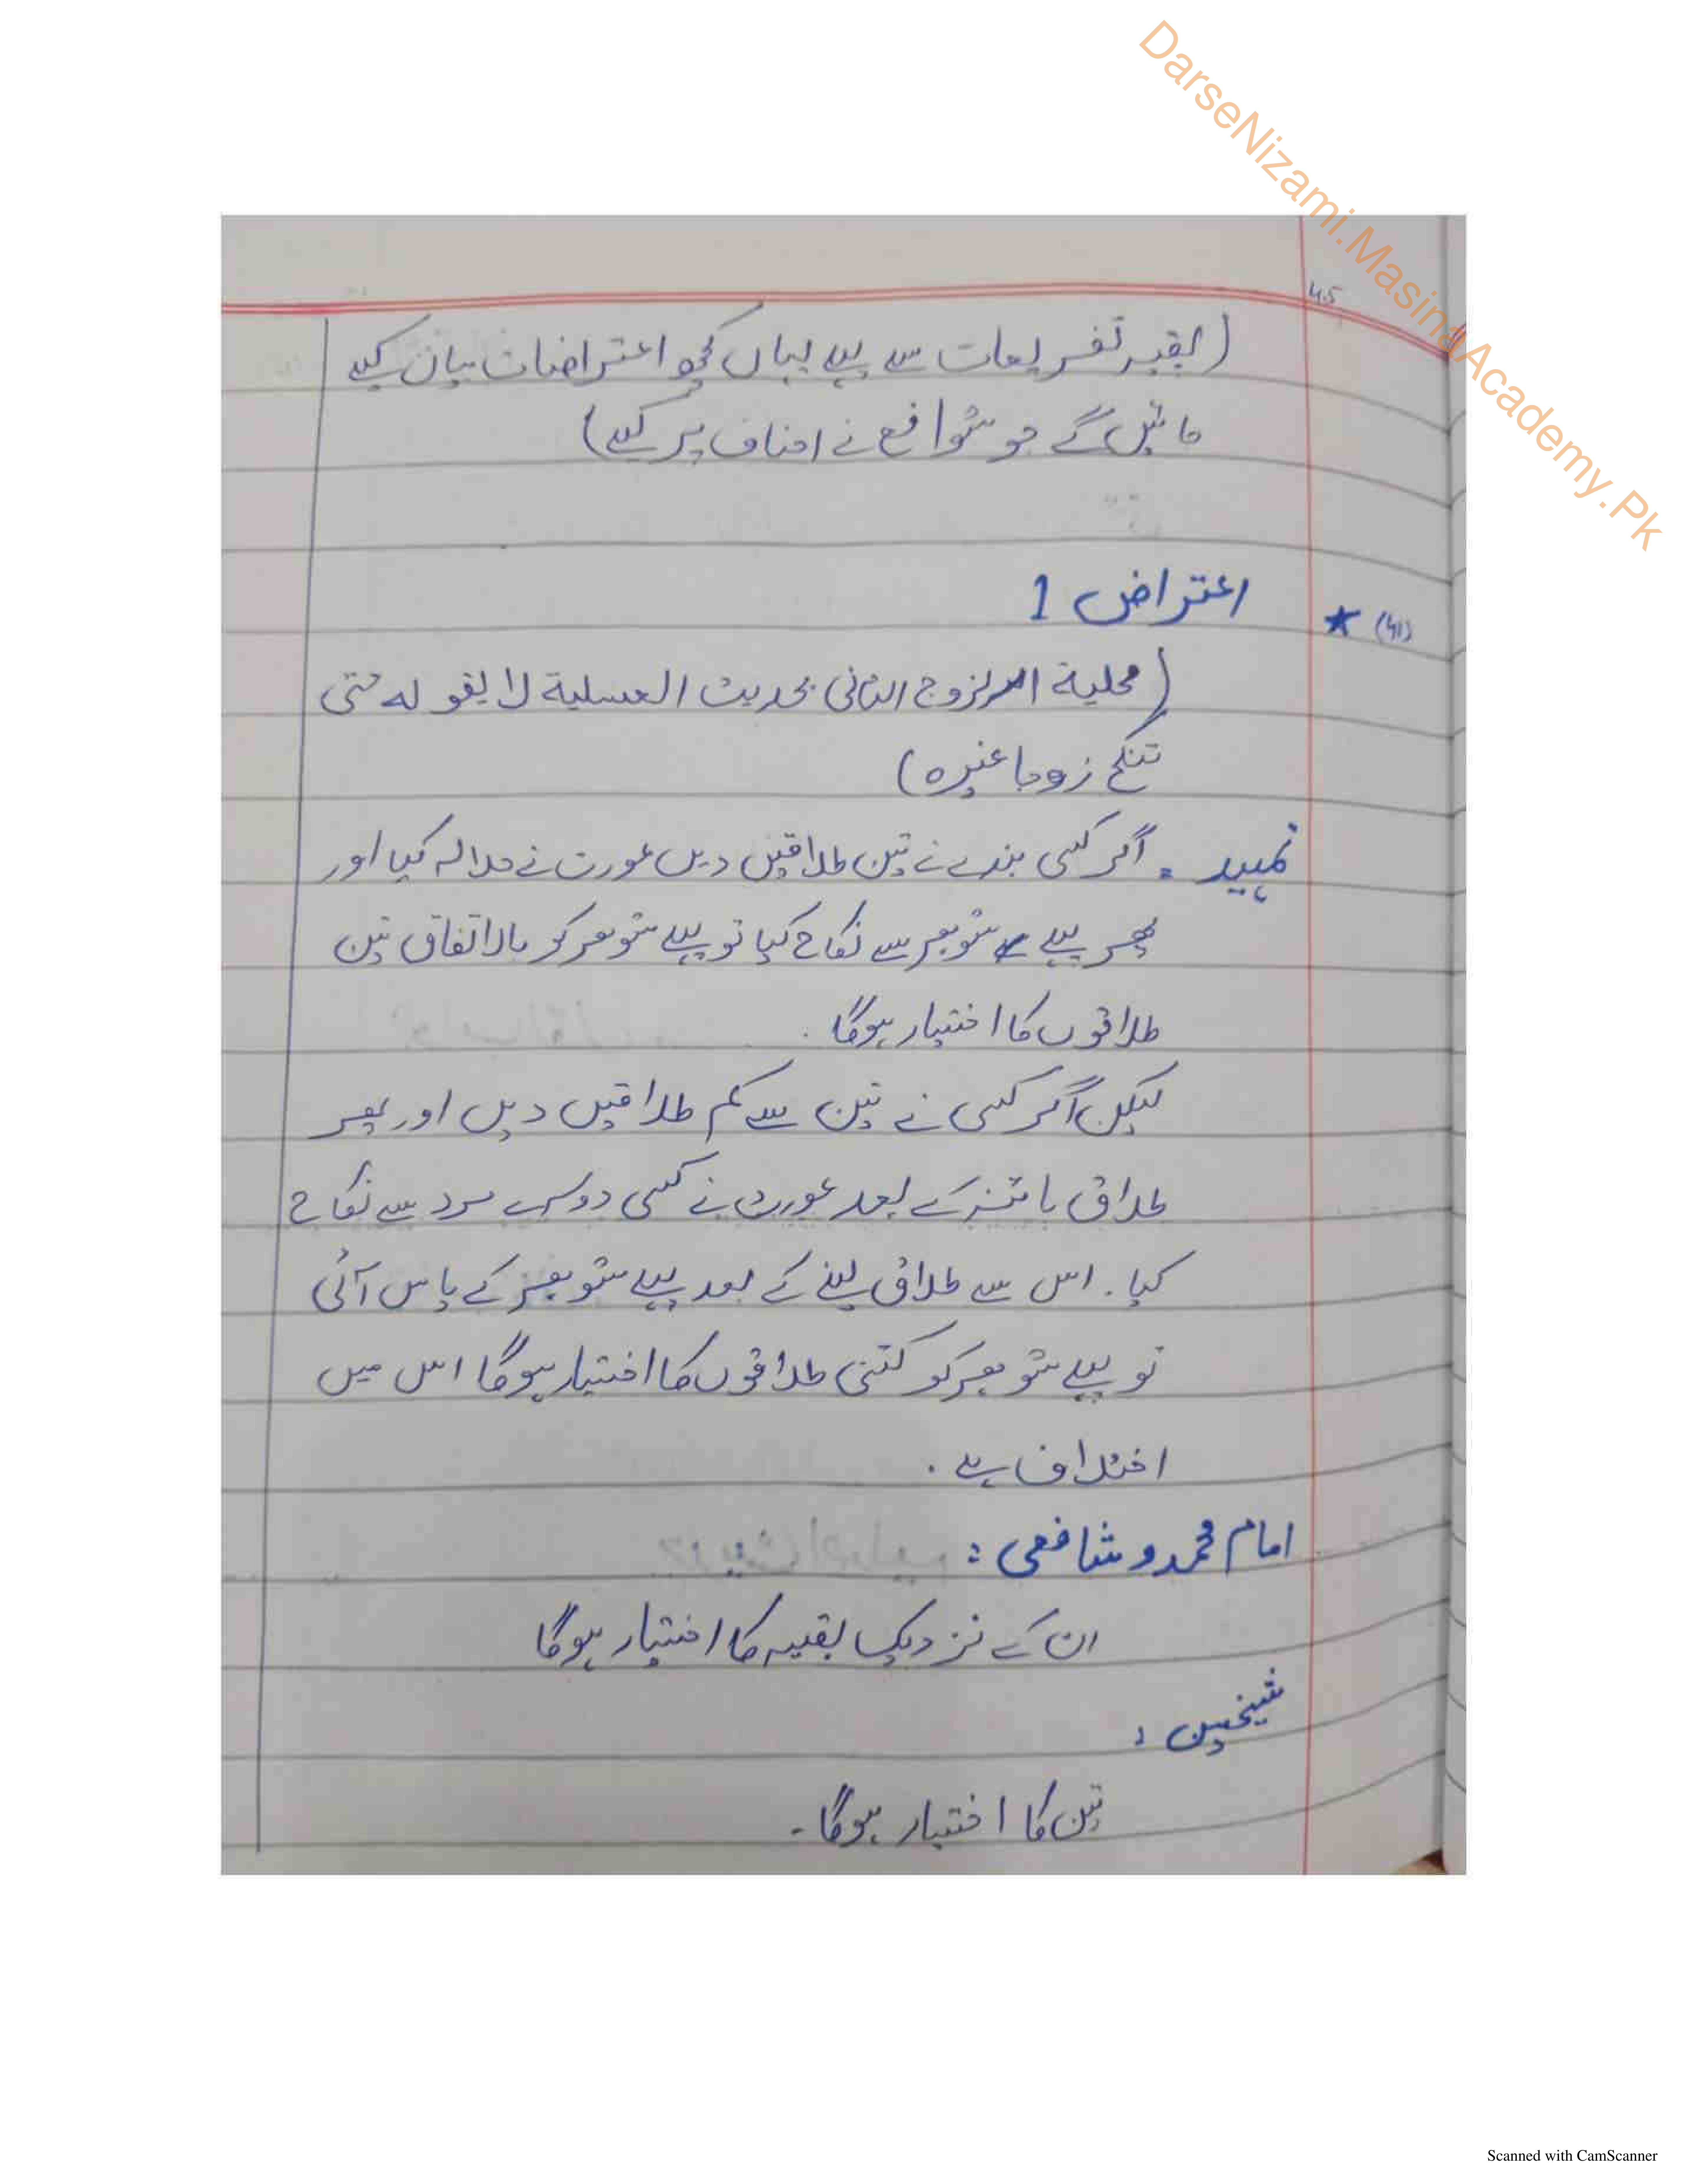 DarseNizami.MasindAcademy.Pk
45
(بقیہ تفریعات سے پہلے یہاں کچھ اعتراضات بیان کیے
جائیں گے جو شوافع نے احناف پر کیے)
اعتراض 1
★ (41)
(محلیة الزوج الثانی بحدیث العسلیة لا بقوله حتی
تنکح زوجا غیرہ)
تمہید . اگر کسی بندے نے تین طلاقیں دیں عورت نے حلالہ کیا اور
پھر پہلے شوہر سے نکاح کیا تو پہلے شوہر کو بالاتفاق تین
طلاقوں کا اختیار ہوگا .
لیکن اگر کسی نے تین سے کم طلاقیں دیں اور پھر
طلاق بائنہ کے بعد عورت نے کسی دوسرے مرد سے نکاح
کیا . اس سے طلاق لینے کے بعد پہلے شوہر کے پاس آئی
تو پہلے شوہر کو کتنی طلاقوں کا اختیار ہوگا اس میں
اختلاف ہے .
امام محمد و شافعی :
ان کے نزدیک بقیہ کا اختیار ہوگا
شیخین :
تین کا اختیار ہوگا -
Scanned with CamScanner